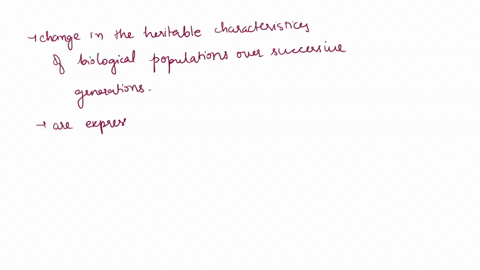 →change in the heritable characteristics
of biological populations over successive
generations.
→ are expres